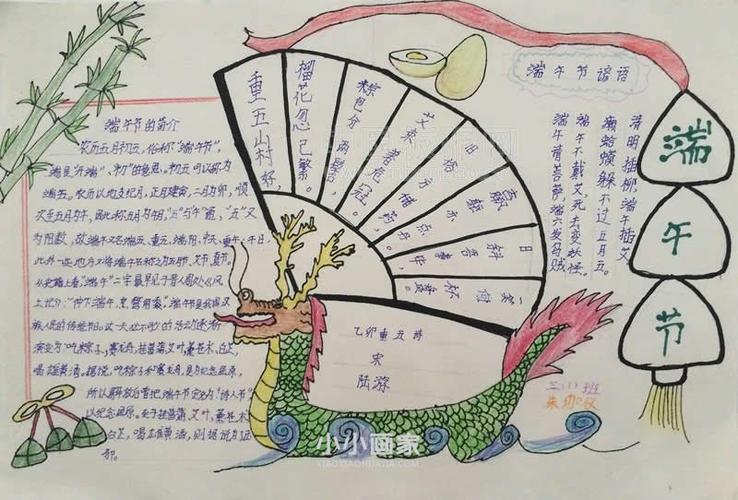 端午节的简介
农历五月初五，俗称"端午节"，
端是"开端"、"初"的意思。初五可以称为
端五。农历以地支纪月，正月建寅，二月为卯，顺
次至五月为午，因此称五月为午月，"五"与"午"通，"五"又
为阳数，故端午又名端五、重五、端阳、中天、重午、午日，
此外一些地方又将端午节称为五月节、艾节、夏节。
从史籍上看，"端午"二字最早见于晋人周处《风
土记》："仲下端午，烹鹜用黍"。端午节是我国汉
族人民的传统节日。这一天必不少的活动逐渐
演变为：吃粽子，赛龙舟，挂菖蒲、艾叶，薰苍术、白芷，
喝雄黄酒。据说，吃粽子和赛龙舟，是为纪念屈原，
所以解放后曾把端午节定为"诗人节"，
以纪念屈原。至于挂菖蒲、艾叶，薰苍术、
白芷，喝雄黄酒，则据说为压
邪。
重五山村好，
榴花忽已繁。
粽包分两髻，
艾束著危冠。
旧俗方储药，
羸躯亦点丹。
日斜吾事毕，
一笑向杯盘。
乙卯重五诗
宋
陆游
端午节谚语
清明插柳，端午插艾
癞蛤蟆躲不过五月五。
端午不戴艾，死去变妖怪。
端
午
节
三（1）班
小小画家
XIAOXIAOHUAJIA.COM